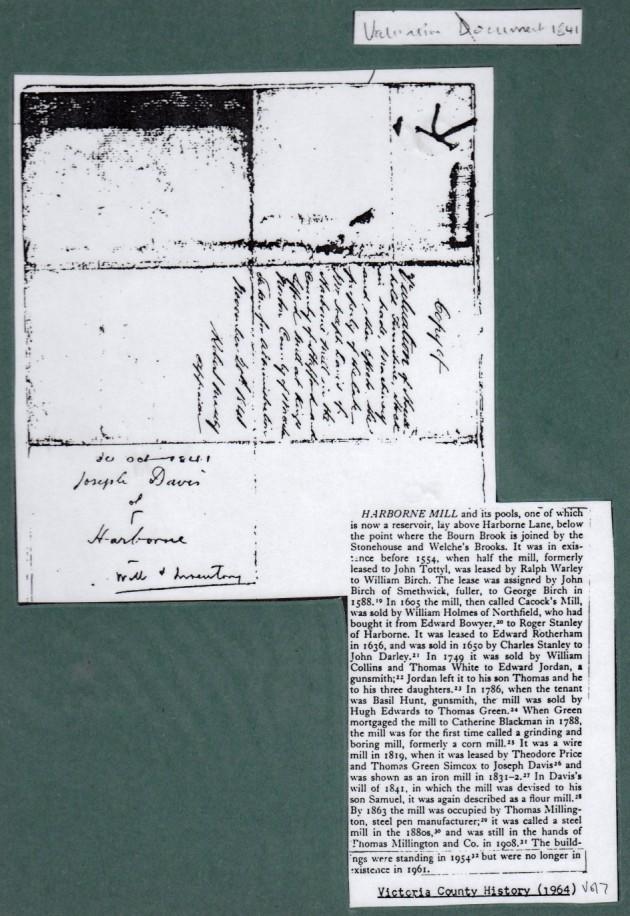 Valuation Document 1841
Copy of
Valuation of
Household Furniture, Stock
in trade, Machinery
and other effects the
property of the late
Mr Joseph Davis of
Harborne Mill in the
County of Stafford and
of Mill at Kings
Norton County of
taken for Administration
November 20th 1841
Robert
appraiser
30 Oct 1841
Joseph Davis
of
Harborne
Will & Inventory
HARBORNE MILL and its pools, one of which
is now a reservoir, lay above Harborne Lane, below
the point where the Bourn Brook is joined by the
Stonehouse and Welche's Brooks. It was in exis-
tence before 1554, when half the mill, formerly
leased to John Tottyl, was leased by Ralph Warley
to William Birch. The lease was assigned by John
Birch of Smethwick, fuller, to George Birch in
1588.¹⁹ In 1605 the mill, then called Cacock's Mill,
was sold by William Holmes of Northfield, who had
bought it from Edward Bowyer,²⁰ to Roger Stanley
of Harborne. It was leased to Edward Rotherham
in 1636, and was sold in 1650 by Charles Stanley to
John Darley.²¹ In 1749 it was sold by William
Collins and Thomas White to Edward Jordan, a
gunsmith;²² Jordan left it to his son Thomas and he
to his three daughters.²³ In 1786, when the tenant
was Basil Hunt, gunsmith, the mill was sold by
Hugh Edwards to Thomas Green.²⁴ When Green
mortgaged the mill to Catherine Blackman in 1788,
the mill was for the first time called a grinding and
boring mill, formerly a corn mill.²⁵ It was a wire
mill in 1819, when it was leased by Theodore Price
and Thomas Green Simcox to Joseph Davis²⁶ and
was shown as an iron mill in 1831–2.²⁷ In Davis's
will of 1841, in which the mill was devised to his
son Samuel, it was again described as a flour mill.²⁸
By 1863 the mill was occupied by Thomas Milling-
ton, steel pen manufacturer;²⁹ it was called a steel
mill in the 1880s,³⁰ and was still in the hands of
Thomas Millington and Co. in 1908.³¹ The build-
ngs were standing in 1954³² but were no longer in
existence in 1961.
Victoria County History (1964) Vol 7